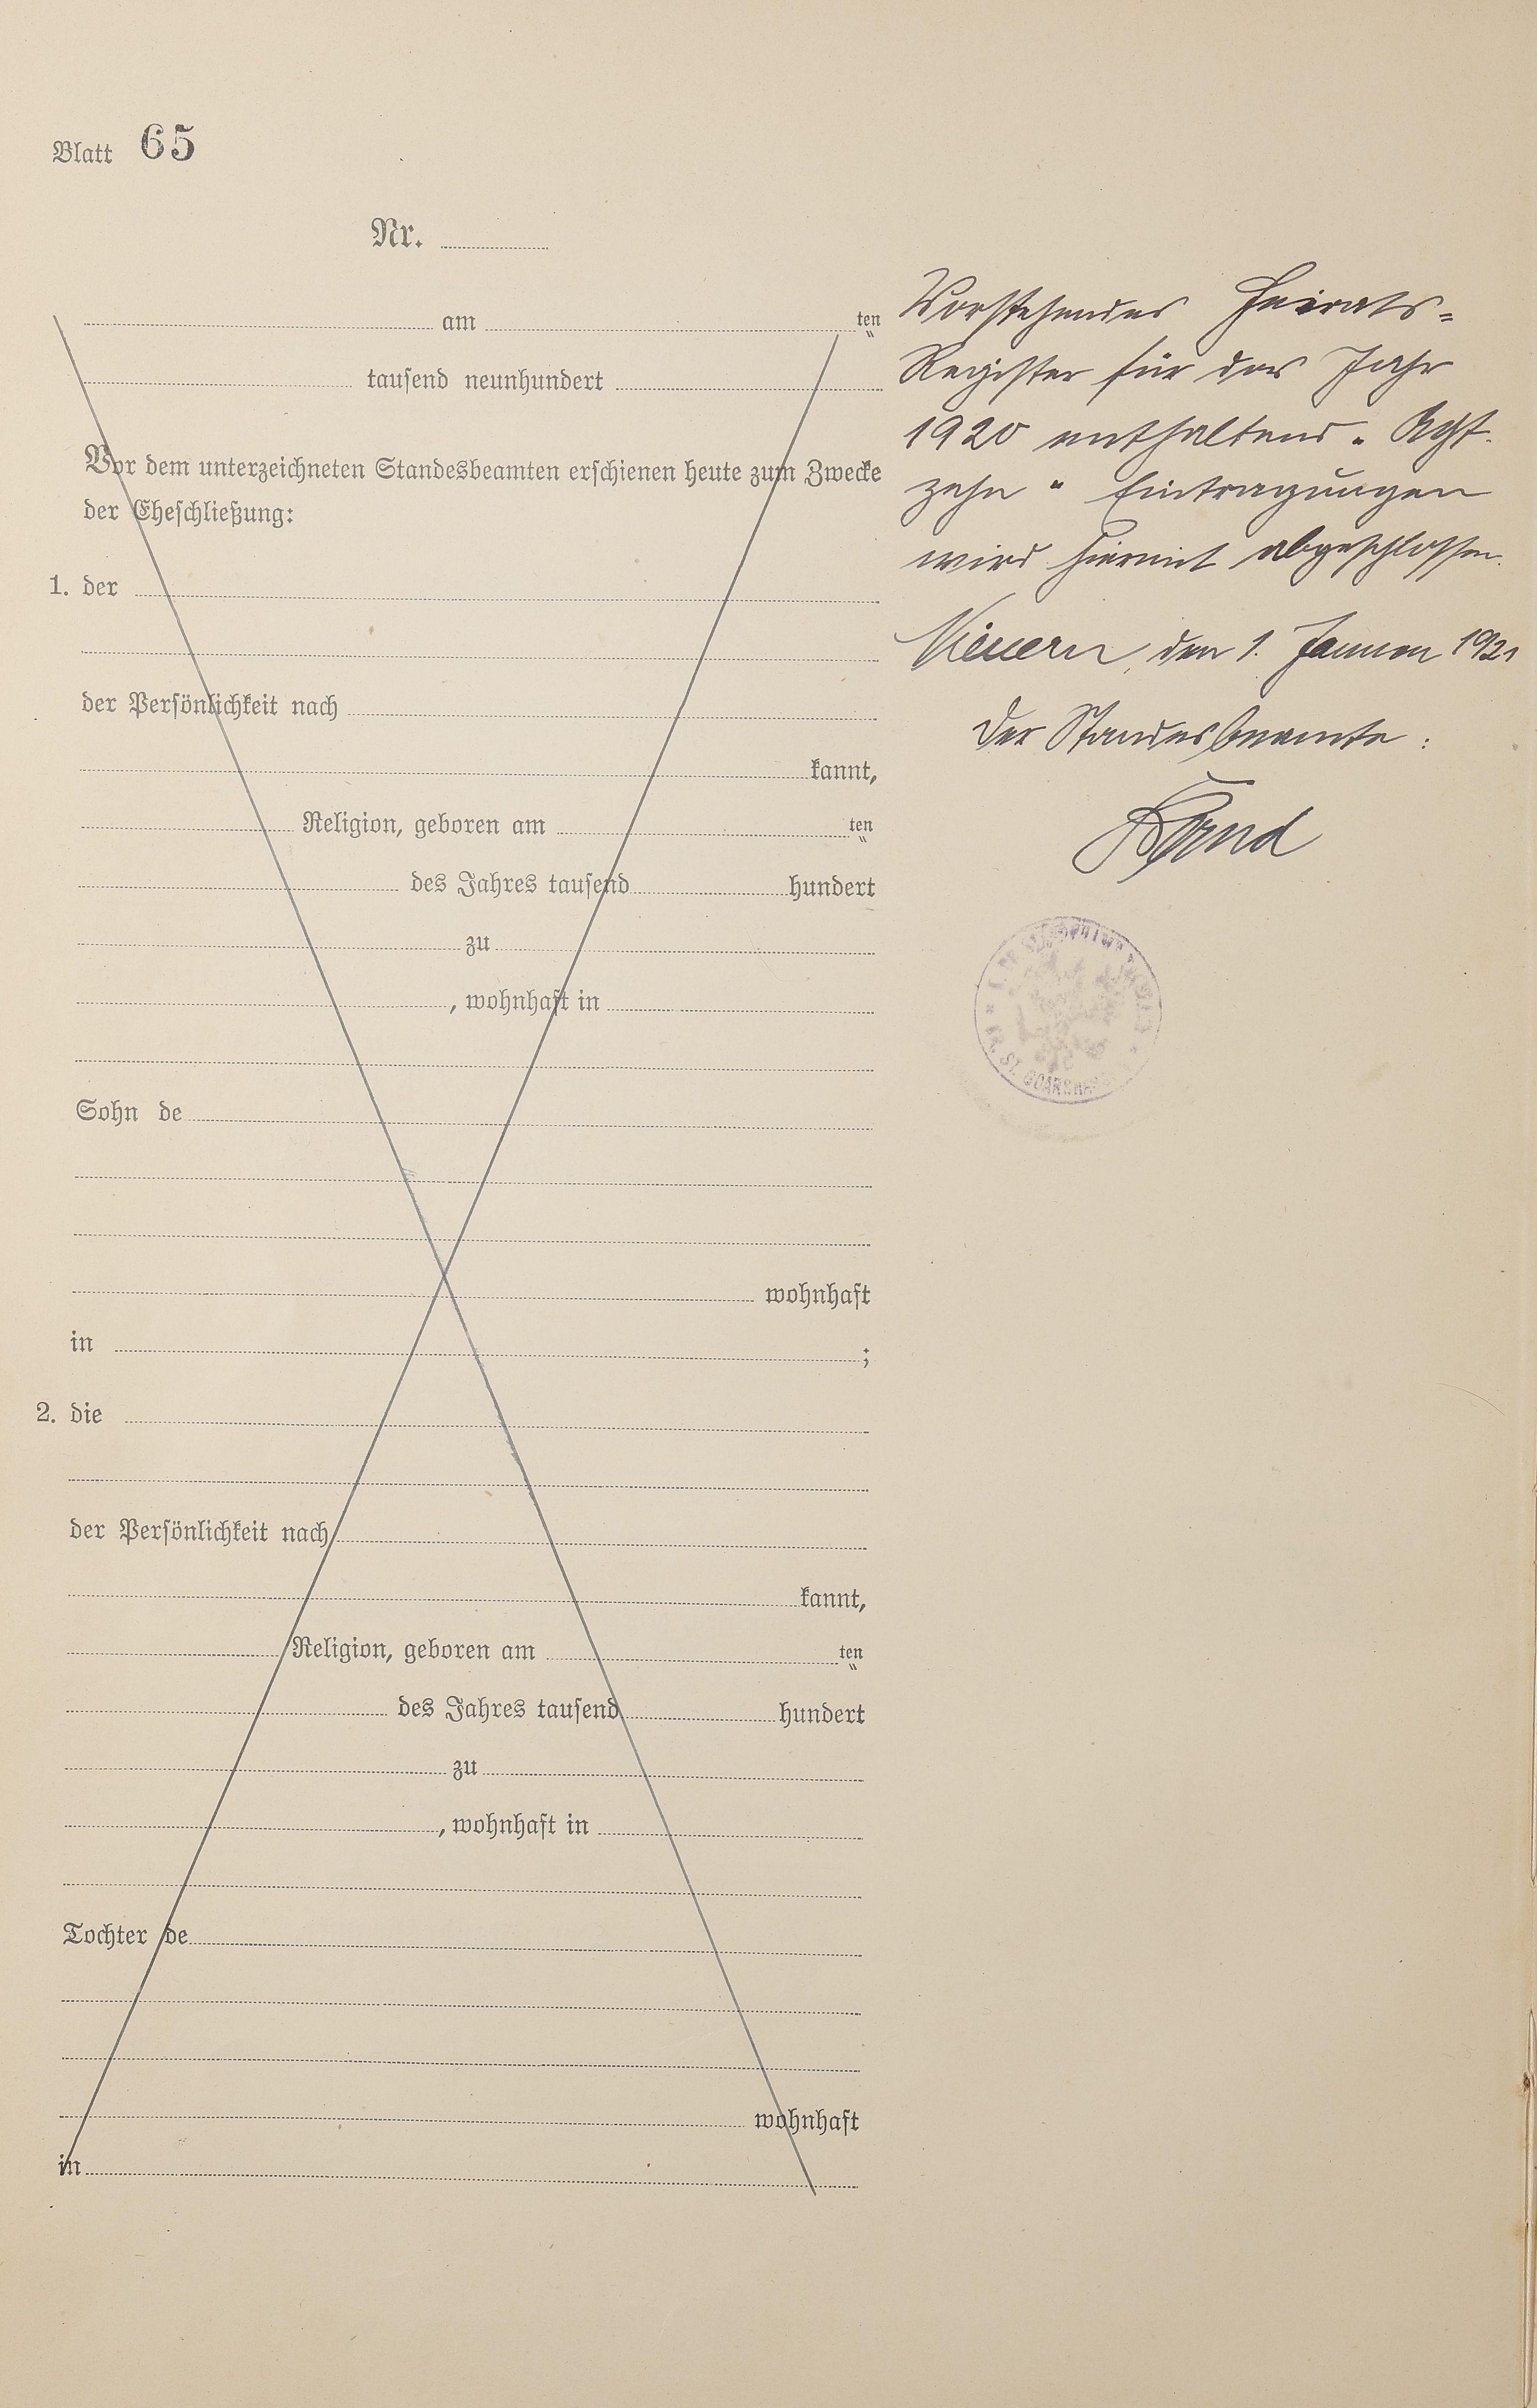 Blatt 65
Nr.
am ten
tausend neunhundert
Vor dem unterzeichneten Standesbeamten erschienen heute zum Zwecke
der Eheschließung:
1. der
der Persönlichkeit nach
kannt,
Religion, geboren am ten
des Jahres tausend hundert
zu
, wohnhaft in
Sohn de
wohnhaft
in ;
2. die
der Persönlichkeit nach
kannt,
Religion, geboren am ten
des Jahres tausend hundert
zu
, wohnhaft in
Tochter de
wohnhaft
in
Vorstehendes Heirats=
Register für das Jahr
1920 enthaltend „ Acht-
zehn " Eintragungen
wird hiermit abgeschlossen.
den 1. Januar 1921
Der Standesbeamte:
KR. ST. GOARSHAUSEN